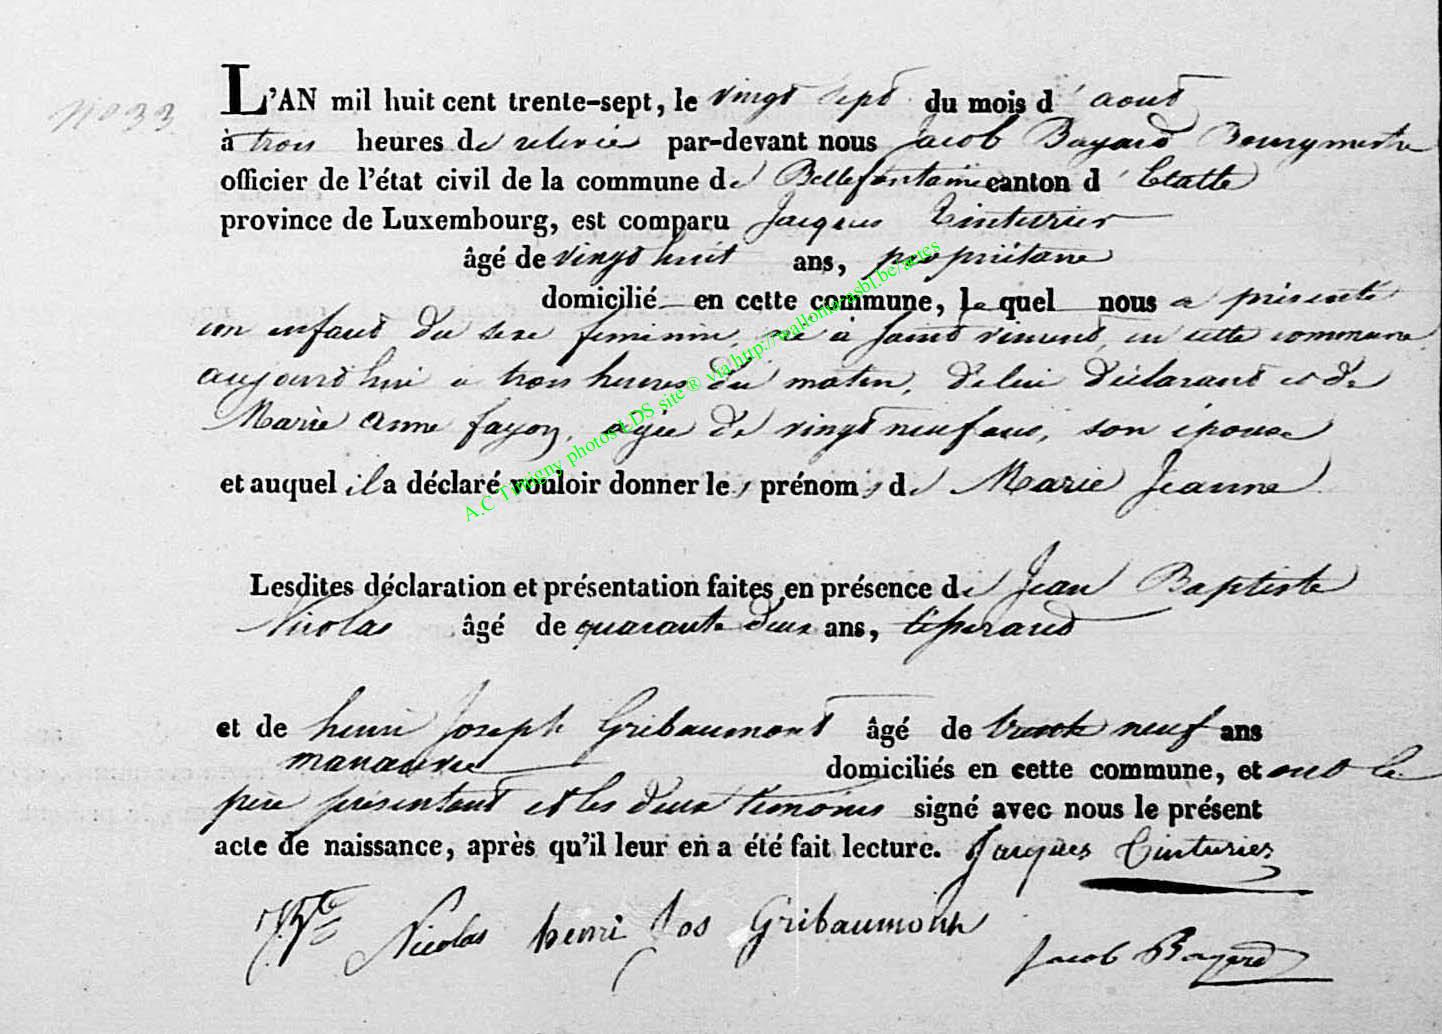 No 33
L'AN mil huit cent trente-sept, le vingt sept du mois d'aout
à trois heures de relevée par-devant nous Jacob Bayard Bourgmestre
officier de l'état civil de la commune de Bellefontaine canton d'Etalle
province de Luxembourg, est comparu Jacques Tinturier
âgé de vingt huit ans, propriétaire
domicilié en cette commune, lequel nous a présenté
un enfant du sexe feminin, né à Saint vincent, en cette commune
aujourd'hui à trois heures du matin, de lui déclarant et de
Marie Anne fayon, agée de vingt neuf ans, son épouse
et auquel il a déclaré vouloir donner les prénoms de Marie Jeanne
Lesdites déclaration et présentation faites en présence de Jean Baptiste
Nicolas âgé de quarante deux ans, tisserand
et de henri Joseph Gribaumont âgé de trente neuf ans
manœuvre domiciliés en cette commune, et ont le
père présentant et les deux temoins signé avec nous le présent
acte de naissance, après qu'il leur en a été fait lecture. Jacques Tinturier
JBte Nicolas henri Jos Gribaumont
Jacob Bayard
A.C Tintigny photos LDS site ® via http://wallonia.asbl.be/actes